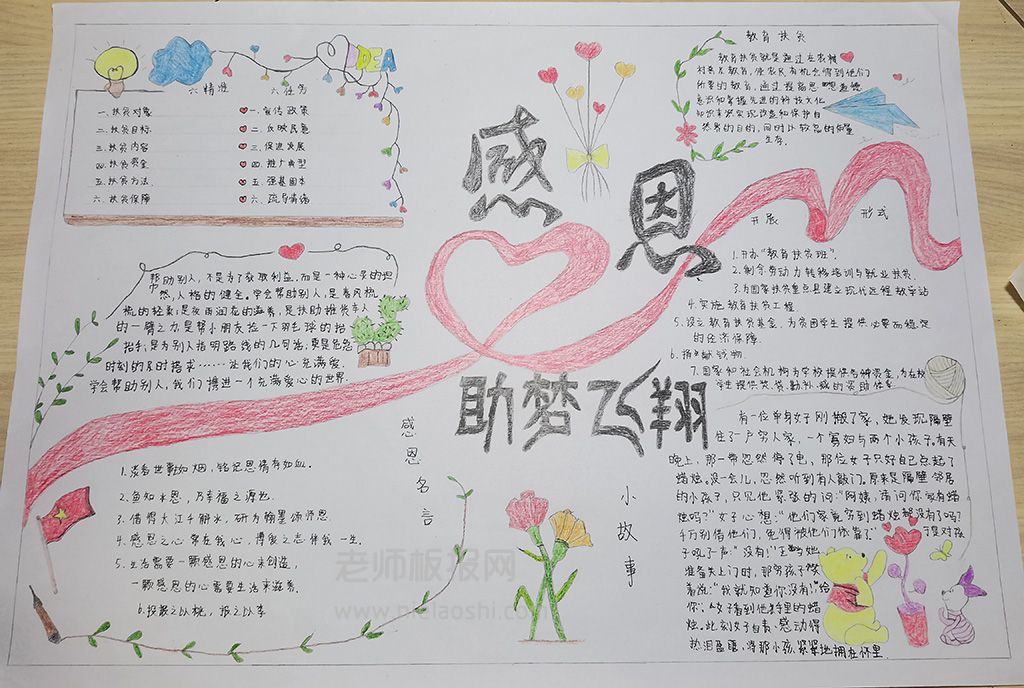 感恩
助梦飞翔
IDEA
六精准 六任务
一.扶贫对象
二.扶贫目标
三.扶贫内容
四.扶贫资金
五.扶贫方法
六.扶贫保障
一.宣传政策
二.反映民意
三.促进发展
四.推广典型
五.强基固本
六.疏导情绪
教育扶贫
教育扶贫就是通过在农村
村普及教育,使农民有机会得到他们
所要的教育,通过提高思想道德
意识和掌握先进的科技文化
知识来实现改造和保护自
然界的目的,同时以较高的质量
生存.
帮助别人,不是为了获取利益.而是一种心灵的坦
然,人格的健全.学会帮助别人,是春风杨
柳的轻柔;是夜雨润花的滋养;是扶助推货车人
的一臂之力;是帮小朋友捡一下羽毛球的抬
抬手;是为别人指明路线的几句话;更是危急
时刻的及时搭求……让我们的心充满爱.
学会帮助别人,我们携进一个充满爱心的世界.
开展 形式
1.开办“教育扶贫班”.
2.制劳动力转移培训与就业扶贫.
3.为国家扶贫重点县建立现代远程教学站
4.实施教育扶贫工程
5.设立教育扶贫基金,为贫困学生提供必要而稳定
的经济保障.
6.捐献钱物.
7.国家和社会机构为学校提供各种资金,为在校
学生提供奖.贷.勤.补.减的资助体系
感恩名言
1.淡看世事如烟,铭记恩情存如血.
2.鱼知水恩,乃幸福之源也.
3.借得大江千斛水,研为翰墨颂师恩.
4.感恩之心常在我心,博爱之志伴我一生.
5.生活需要一颗感恩的心来创造,
一颗感恩的心需要生活来滋养.
6.投我之以桃,报之以李
小故事
有一位单身女子刚搬了家,她发现隔壁
住了一户穷人家,一个寡妇与两个小孩子.有天
晚上,那一带忽然停了电,那位女子只好自己点起了
蜡烛.没一会儿,忽然听到有人敲门.原来是隔壁邻居
的小孩子,只见他紧张的问:“阿姨,请问你家有蜡
烛吗?”女子心想:“他们家竟穷到蜡烛都没有了吗?
千万别借他们,免得被他们依靠了.”于是对孩
子吼了一声:“没有!”正当她
准备关上门时,那穷孩子笑
着说:“我就知道你没有!”给
你.女子看到他手里的蜡
烛.此刻女子自责.感动得
热泪盈眶,将那小孩紧紧地拥在怀里.
老师板报网
www.nielaoshi.com